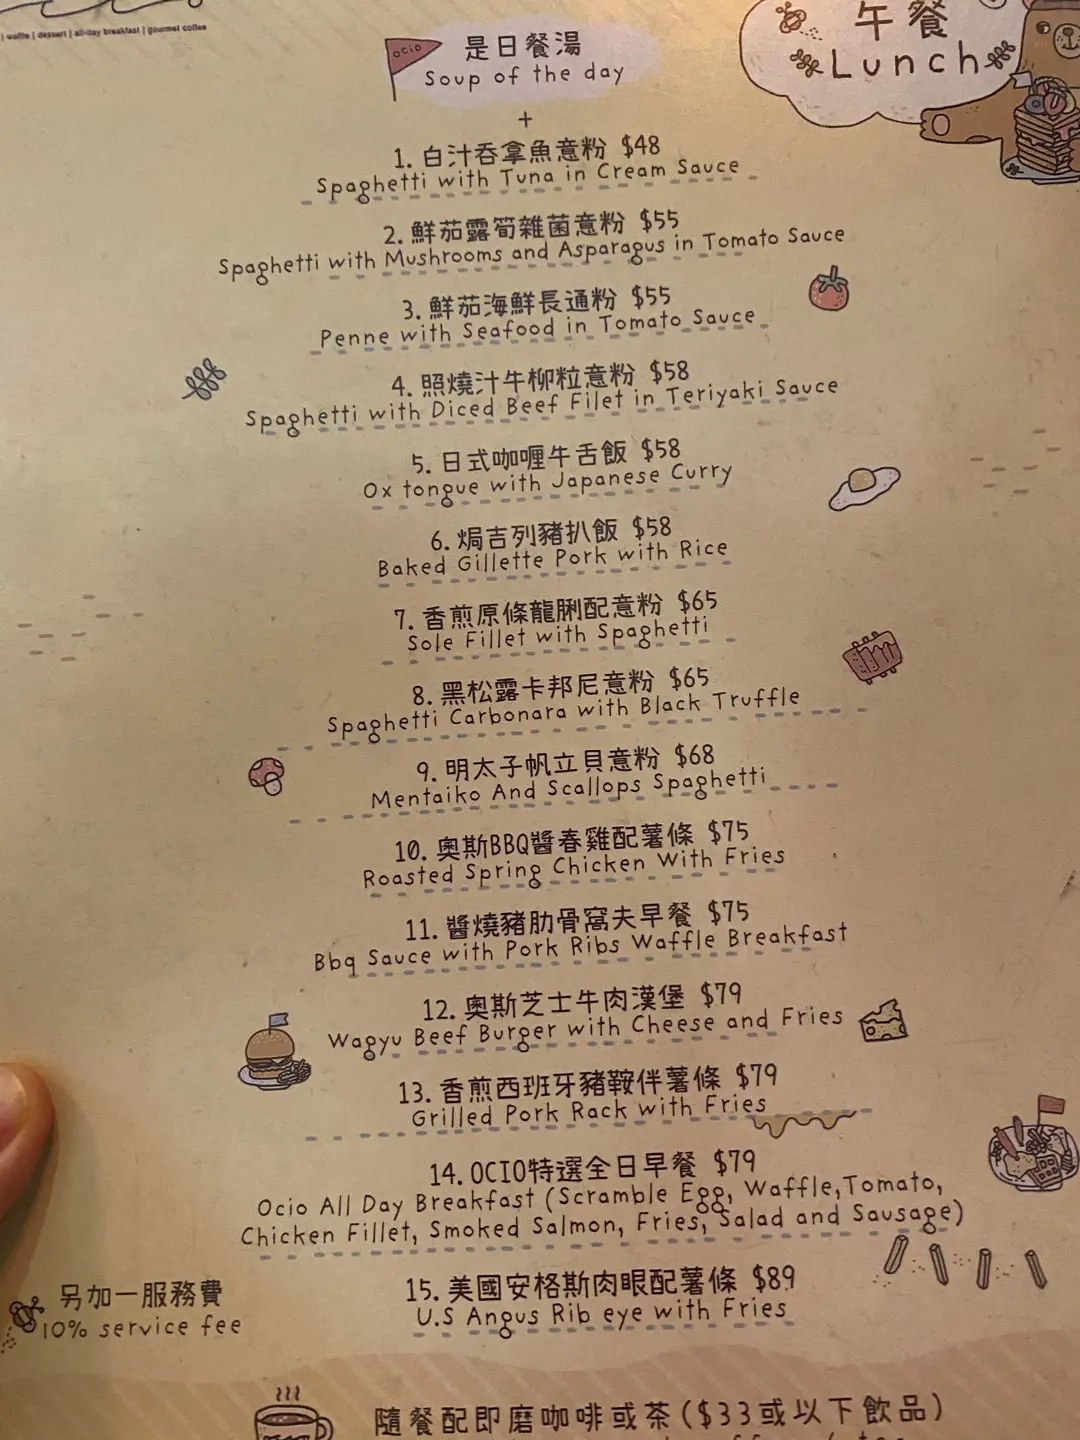 | waffle | dessert | all-day breakfast | gourmet coffee
午餐
Lunch
ocio
是日餐湯
Soup of the day
+
1. 白汁吞拿魚意粉 $48
Spaghetti with Tuna in Cream Sauce
2. 鮮茄露筍雜菌意粉 $55
Spaghetti with Mushrooms and Asparagus in Tomato Sauce
3. 鮮茄海鮮長通粉 $55
Penne with Seafood in Tomato Sauce
4. 照燒汁牛柳粒意粉 $58
Spaghetti with Diced Beef Filet in Teriyaki Sauce
5. 日式咖喱牛舌飯 $58
Ox tongue with Japanese Curry
6. 焗吉列豬扒飯 $58
Baked Gillette Pork with Rice
7. 香煎原條龍脷配意粉 $65
Sole Fillet with Spaghetti
8. 黑松露卡邦尼意粉 $65
Spaghetti Carbonara with Black Truffle
9. 明太子帆立貝意粉 $68
Mentaiko And Scallops Spaghetti
10. 奧斯BBQ醬春雞配薯條 $75
Roasted Spring Chicken With Fries
11. 醬燒豬肋骨窩夫早餐 $75
Bbq Sauce with Pork Ribs Waffle Breakfast
12. 奧斯芝士牛肉漢堡 $79
Wagyu Beef Burger with Cheese and Fries
13. 香煎西班牙豬鞍伴薯條 $79
Grilled Pork Rack with Fries
14. OCIO特選全日早餐 $79
Ocio All Day Breakfast (Scramble Egg, Waffle,Tomato,
Chicken Fillet, Smoked Salmon, Fries, Salad and Sausage)
15. 美國安格斯肉眼配薯條 $89
U.S Angus Rib eye with Fries
另加一服務費
10% service fee
隨餐配即磨咖啡或茶($33或以下飲品)